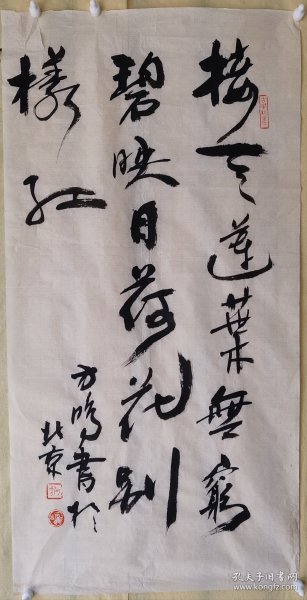 接天蓮葉無窮
碧映日荷花別
樣紅
方鳴書於
北京
孔夫子旧书网